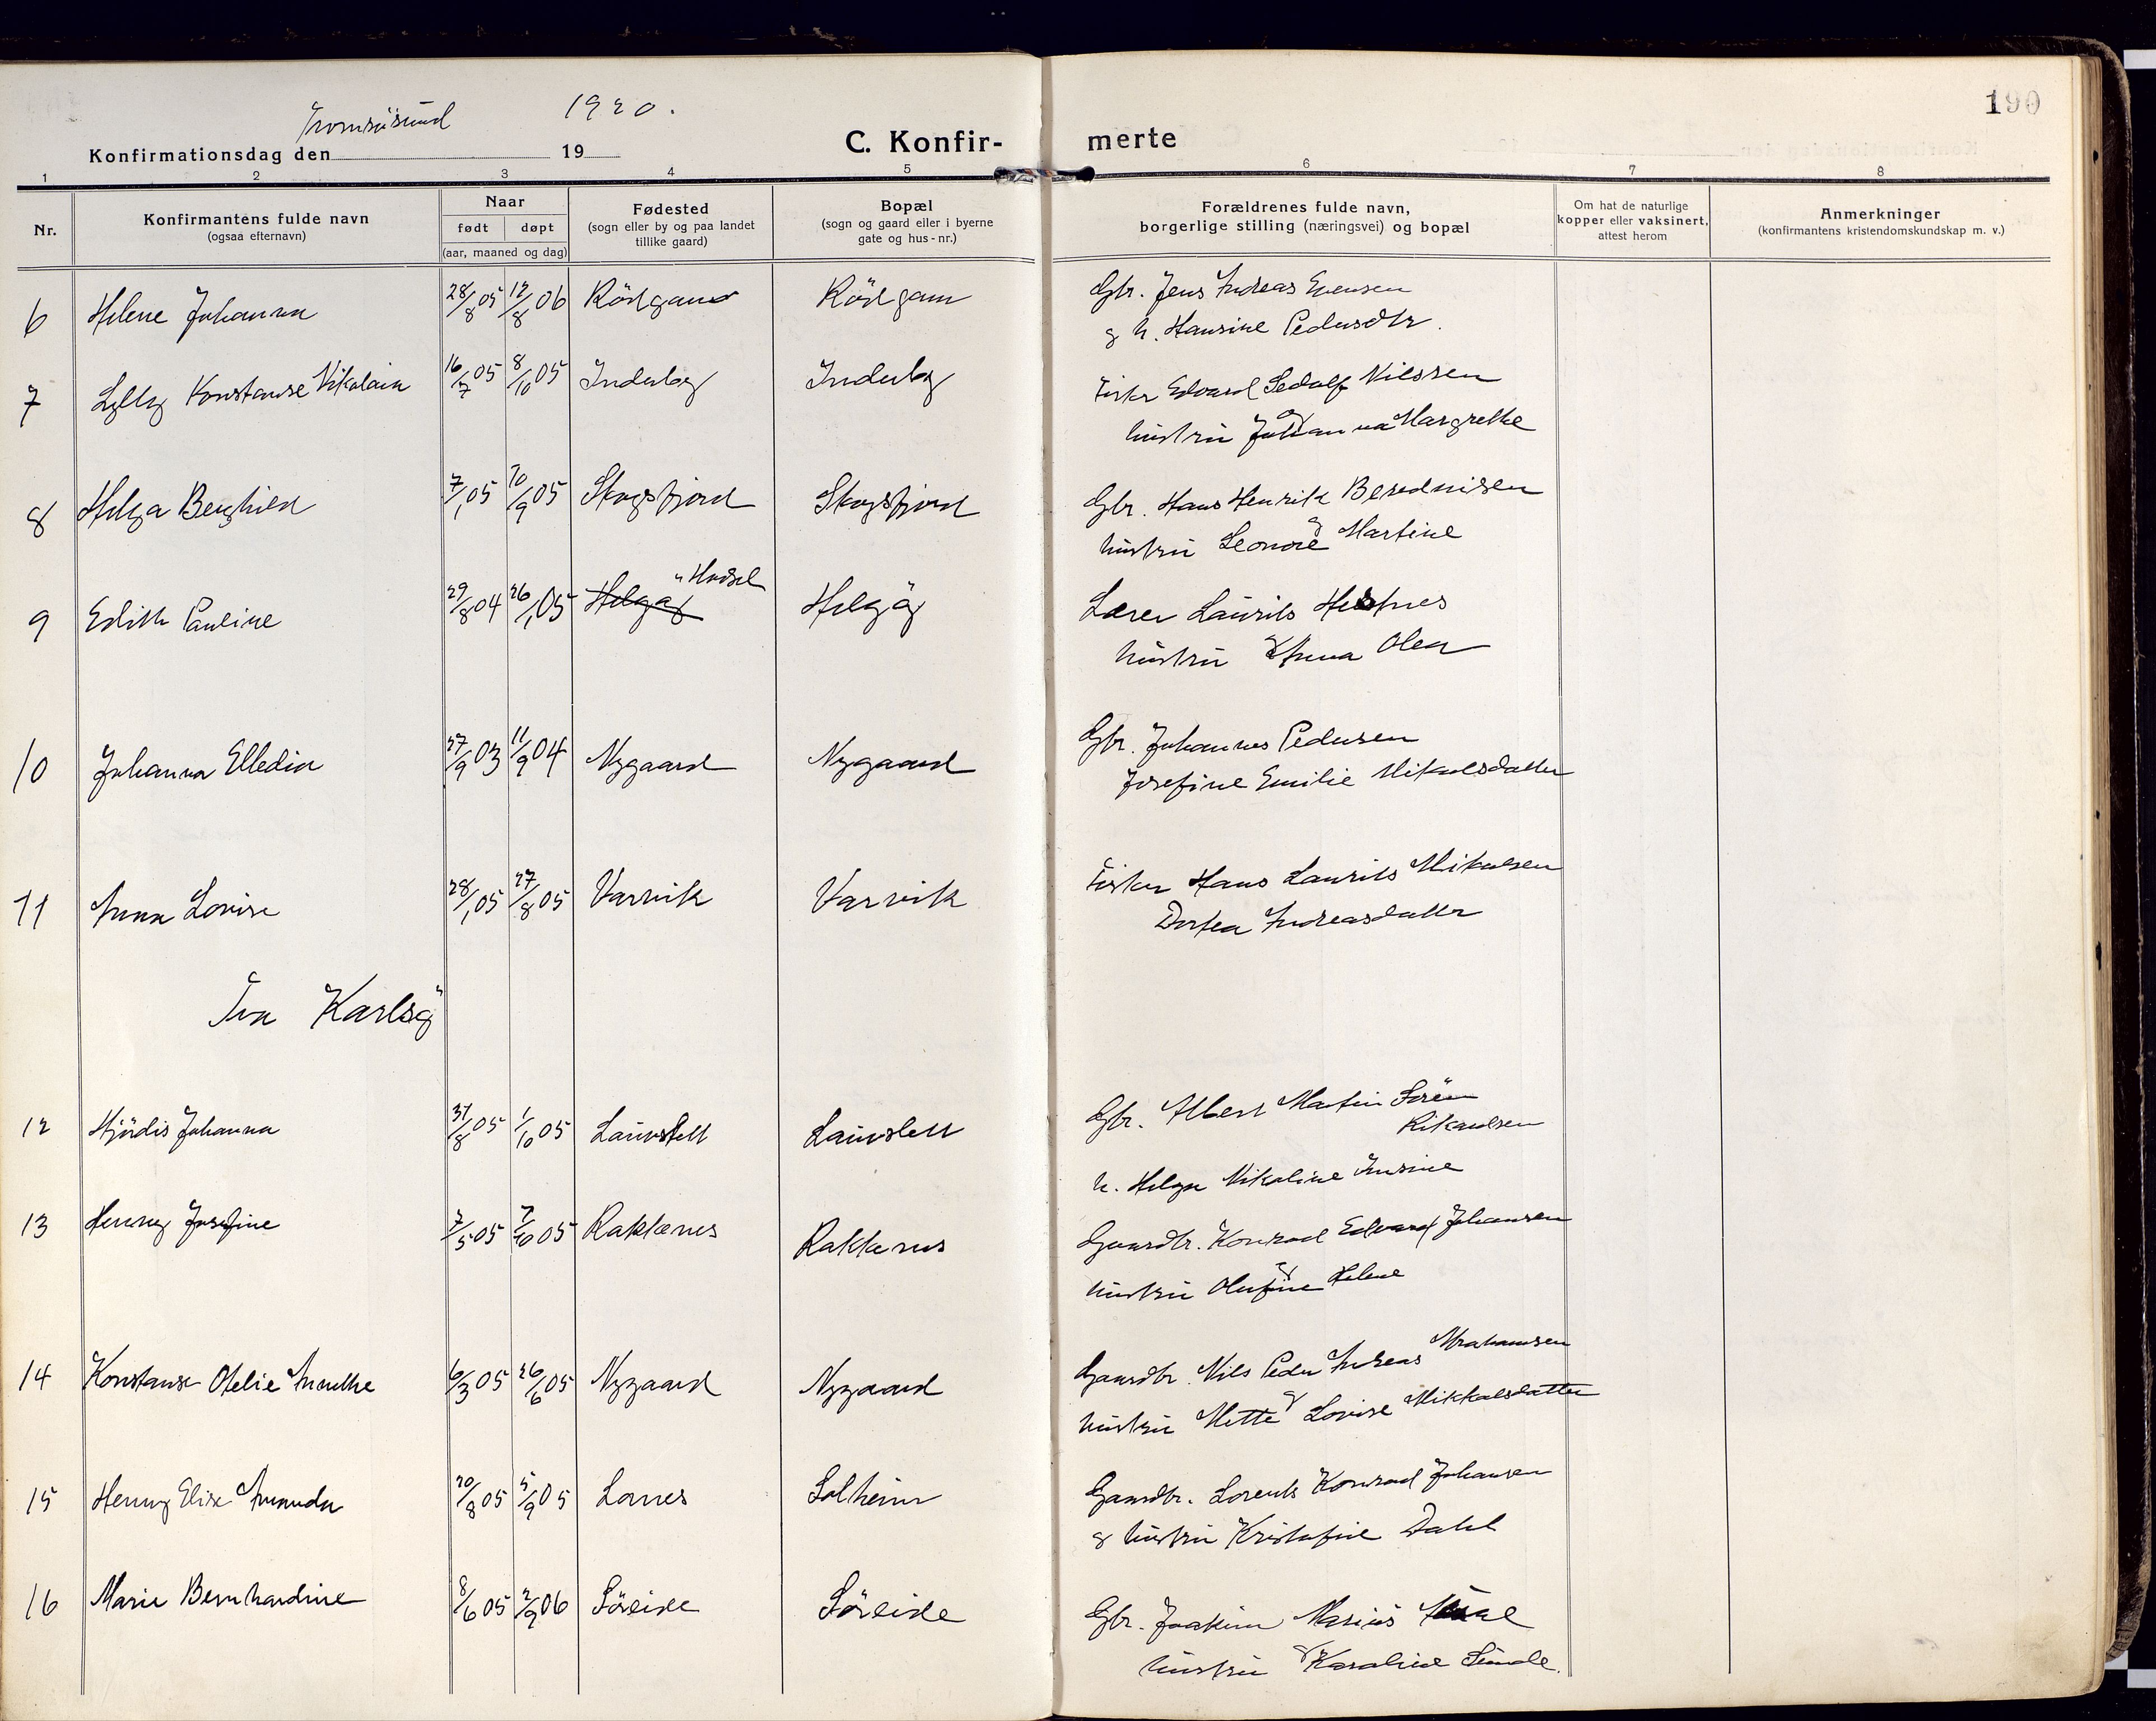 190
Tromsösund 1920.
Konfirmationsdag den 19
C. Konfir- merte
1 2 3 4 5 6 7 8
Nr.
Konfirmantens fulde navn
(ogsaa efternavn)
Naar
født døpt
(aar, maaned og dag)
Fødested
(sogn eller by og paa landet
tillike gaard)
Bopæl
(sogn og gaard eller i byerne
gate og hus-nr.)
Forældrenes fulde navn,
borgerlige stilling (næringsvei) og bopæl
Om hat de naturlige
kopper eller vaksinert,
attest herom
Anmerkninger
(konfirmantens kristendomskundskap m. v.)
6 Helene Johanna 28/8 05 12/8 06 Rödgam Rödgam Gbr. Jens Andreas Evensen
g h. Hansine Pedersdtr.
7 Lylly Konstanse Nikolain 16/7 05 8/10 05 Inderby Inderby Fisker Edvard Sedolf Nilssen
hustru Johanna og Margrethe
8 Helga Berghild 7/1 05 10/9 05 Skogsfjord Skogsfjord Gbr. Hans Henrik
hustru Leonore og Martine
9 Edith Pauline 29/8 04 26/1 05 Helgøy Hadsel Helgöy Lærer Laurits Hestnes
hustru og Anna Olea
10 Johanna Elledia 27/9 03 11/9 04 Nygaard Nygaard Gbr. Johannes Pedersen
Josefine Emilie Mikalsdatter
11 Anna Lovise 28/1 05 27/8 05 Vasvik Vasvik Fisker Hans Laurits Mikalsen
Dortea Andreasdatter
Fra Karlsö
12 Hjördis Johanna 31/8 05 1/10 05 Lauvslett Lauvslett Gbr. Albert Martin Sören
Rikardsen
h. Helga Nikoline Jensine
13 Henny Josefine 3/5 05 7/10 05 Rakkenes Rakkenes Gaardbr. Konrad Edvard Johansen
hustru Olufine og Helene
14 Konstanse Otelie Annethe 6/3 05 26/6 05 Nygaard Nygaard Gaardbr. Nils Peder Andreas Abrahamsen
hustru Mette og Lovise Mikkalsdatter
15 Henny Elise Amanda 20/8 05 5/9 05 Lanes Solheim Gaardbr. Lorents Konrad Johansen
g hustru Kristofine Dahl
16 Marie Bernhardine 8/6 05 2/9 06 Söreide Söreide Gbr. Joakim Marius
hustru og Karoline Sunde.